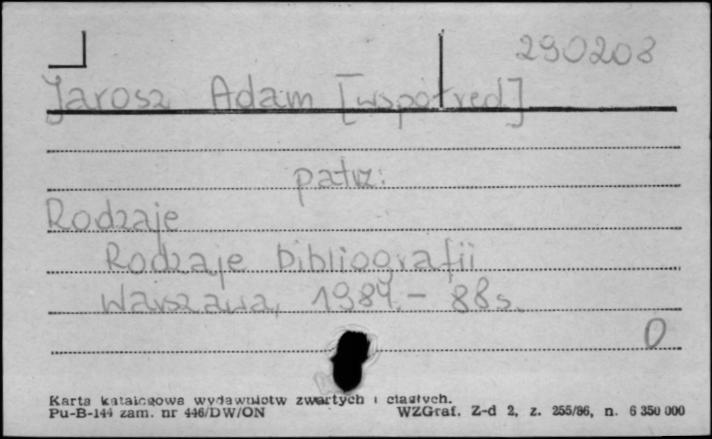 290208
Jarosz Adam [współred]
patrz:
Rodzaje
Rodzaje bibliografii
Warszawa, 1984.- 88s.
O
Karta katalogowa wydawnictw zwartych i ciągłych.
Pu-B-144 zam. nr 446/DW/ON WZGraf. Z-d 2, z. 255/86, n. 6 350 000